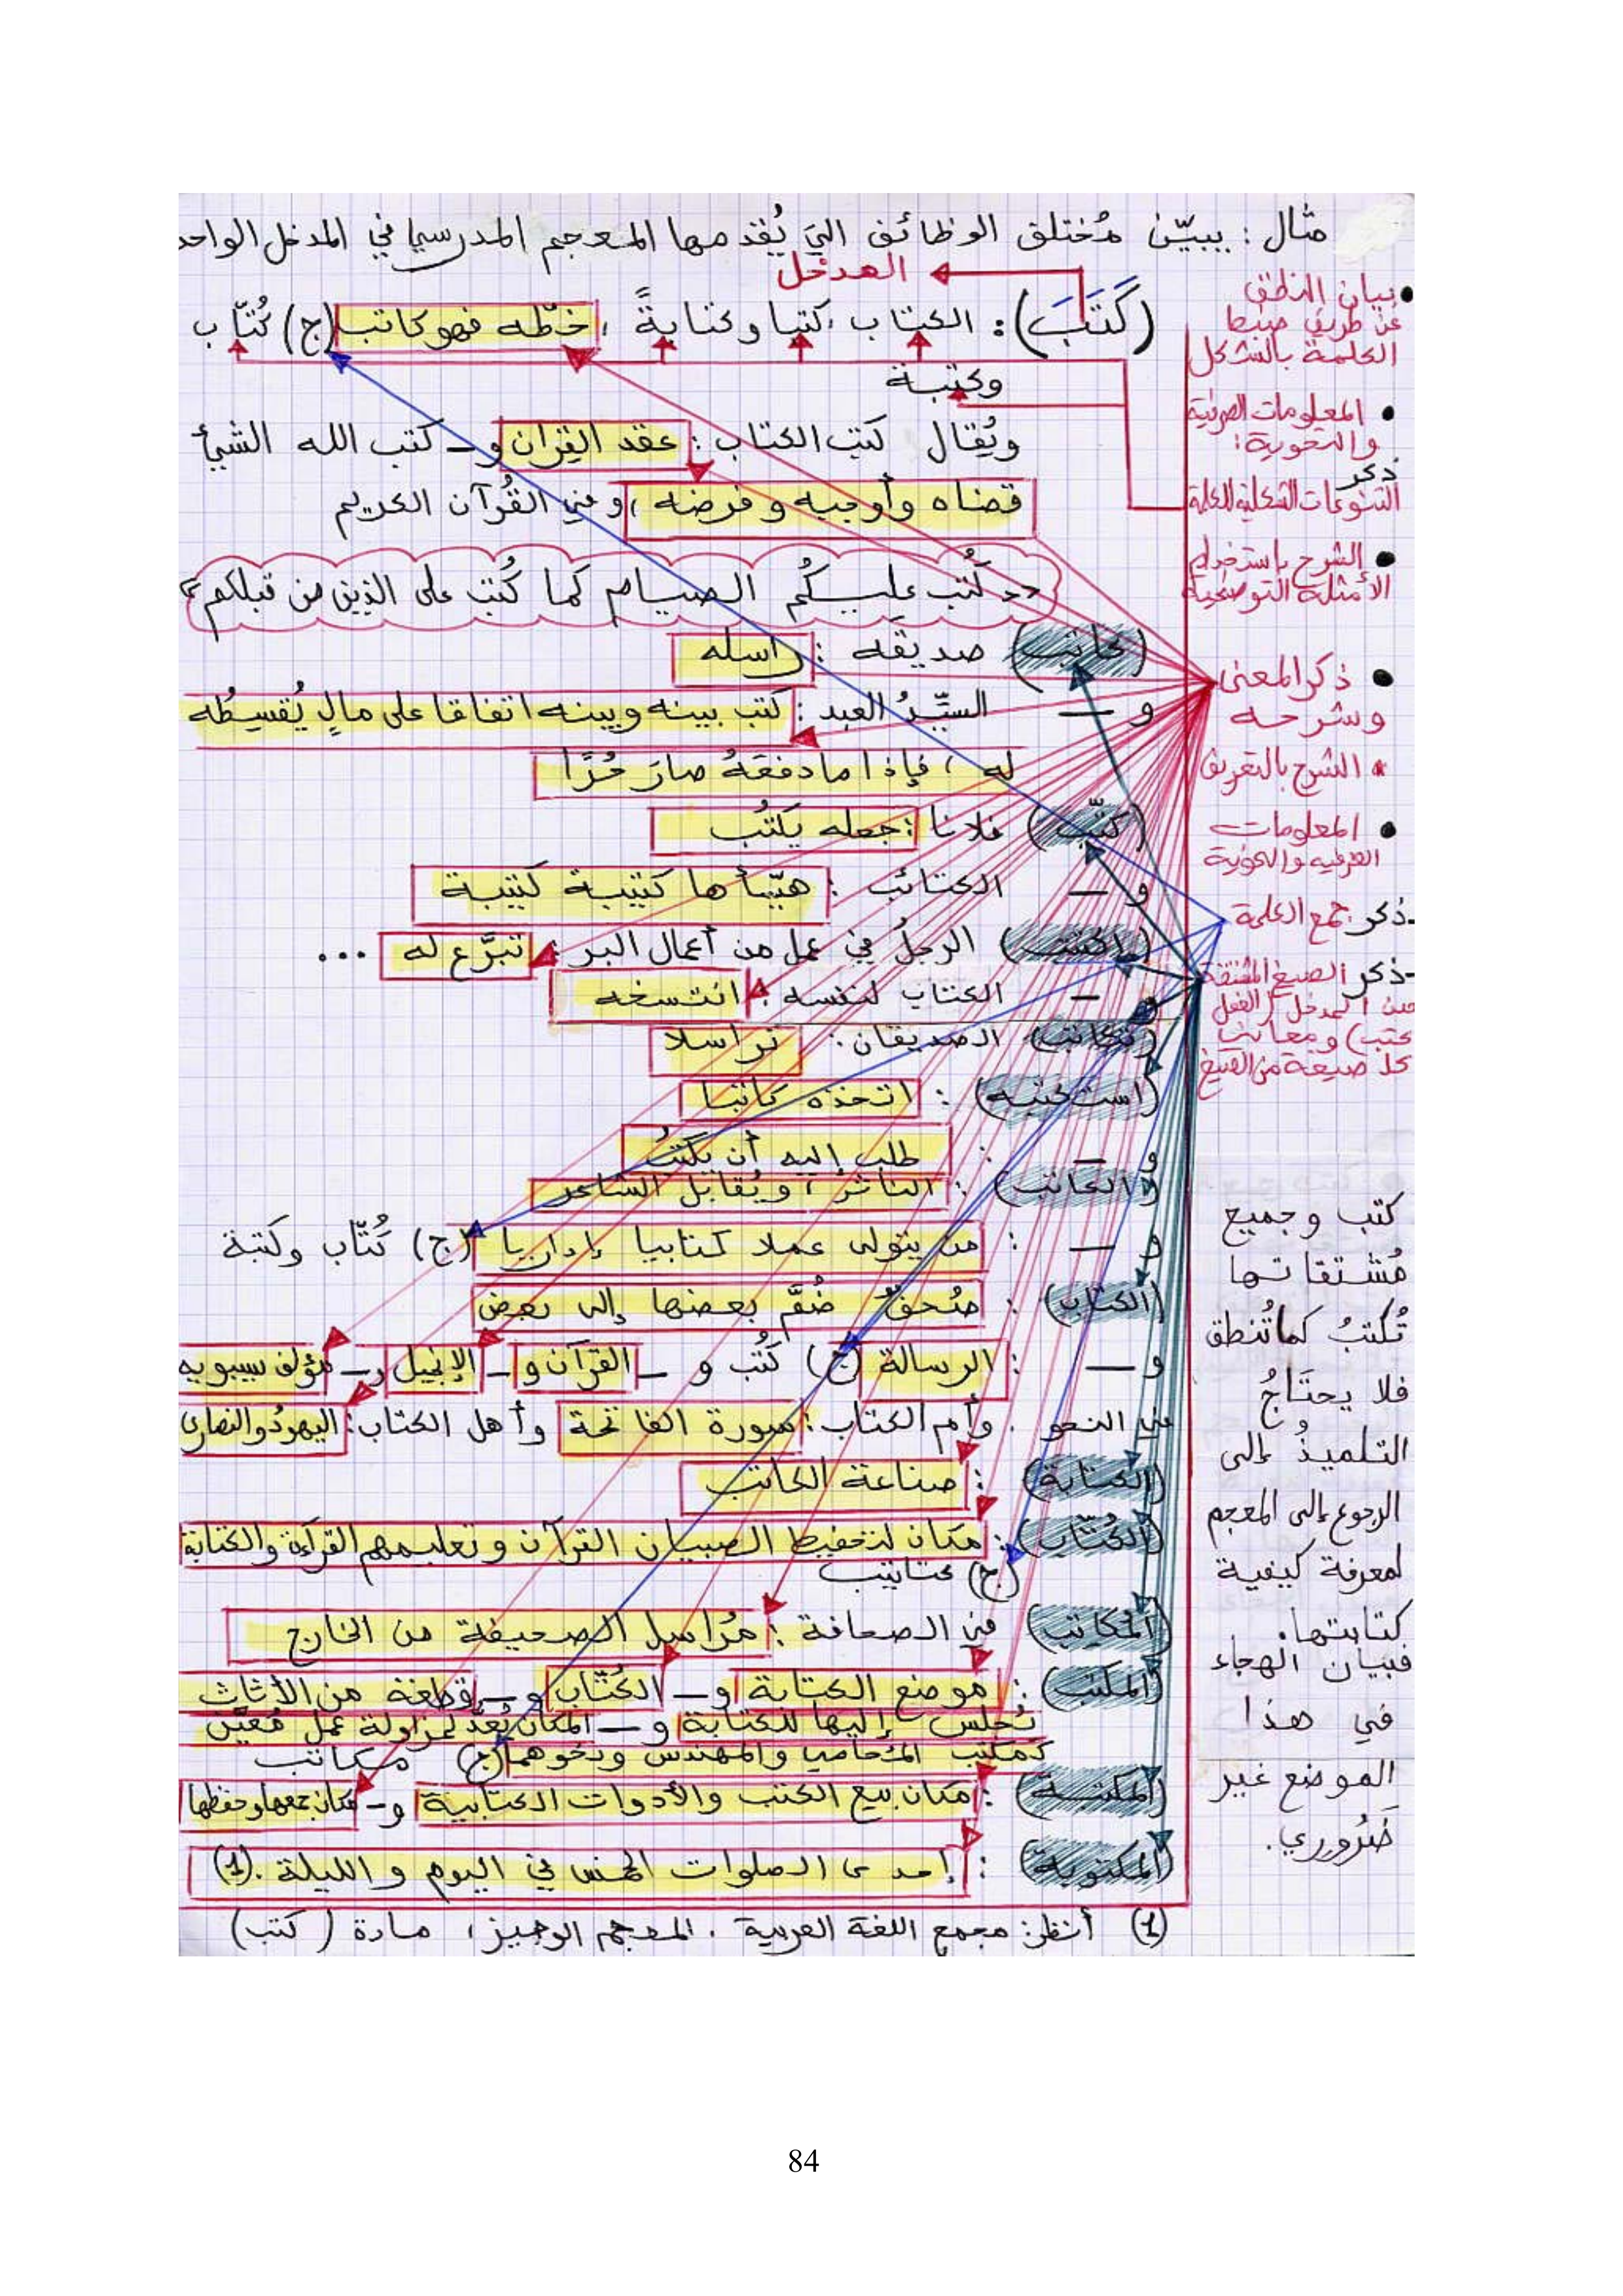 مثال : يبيّن مُختلق الوظائف التي يُقدمها المعجم المدرسي في المدخل الواحد
المدخل
(كَتَبَ) : الكتاب ، كتبا وكتابةً ، خطّه فهو كاتب (ج) كُتّاب
وكتبة
ويُقال كتب الكتاب : عقد القِران و ــ كتب الله الشيئ
قضاه وأوجبه وفرضه ، وفي القُرآن الكريم
<< كُتب عليكُم الصيام كما كُتب على الذين من قبلكم >>
(كاتب) صديقَه : راسله
و ــ السيّدُ العبد : كتب بينه وبينه اتفاقا على مالٍ يُقسِطُه
له ، فإذا ما دفعَهُ صارَ حُرًّا
(كتّب) فلانا : جعله يكتُب
و ــ الكتائب : هيّأها كتيبة كتيبة
(اكتتب) الرجلُ في عمل من أعمال البر : تبرَّع له ...
و ــ الكتاب لنفسه : انتسخه
(تكاتب) الصديقان : تراسلا
(استكتبه) : اتخذه كاتبا
و ــ : طلب إليه أن يكتُبُ
(الكاتب) : الناثر ، ويُقابل الشاعر
و ــ : من يتولى عملا كتابيا إداريا (ج) كُتّاب وكتبة
(الكتاب) : صُحفٌ ضُمَّ بعضها إلى بعض
و ــ : الرسالة (ج) كُتب و ــ القرآن و ــ الإنجيل و ــ مؤلف سيبويه
في النحو . وأم الكتاب : سورة الفاتحة وأهل الكتاب : اليهودُ والنصارى
(الكتابة) : صناعة الكاتب
(الكُتّاب) : مكان لتحفيظ الصبيان القرآن وتعليمهم القراءة والكتابة
(ج) كتاتيب
(المكاتب) في الصحافة : مُراسل الصحيفة من الخارج
(المكتب) : موضع الكتابة و ــ الكُتّاب و ــ قطعة من الأثاث
تُجلس إليها للكتابة و ــ المكان يُعدّ لمزاولة عمل مُعيّن
كمكتب المُحامي والمهندس ونحوهما (ج) مكاتب
(المكتبة) : مكان بيع الكتب والأدوات الكتابية و ــ مكان جمعها وحفظها
(المكتوبة) : إحدى الصلوات الخمس في اليوم والليلة . (1)
(1) أنظر : مجمع اللغة العربية . المعجم الوجيز ، مادة (كتب)
• بيان النطق
عن طريق ضبط
الكلمة بالشكل
• المعلومات الصرفية
والنحوية :
ذكر
التنوعات الشكلية للكلمة
• الشرح باستخدام
الأمثلة التوضيحية
• ذكر المعنى
وشرحه
* الشرح بالتعريف
• المعلومات
الصرفية والنحوية
- ذكر جمع الكلمة
- ذكر الصيغ المشتقة
من المدخل (الفعل
كتب) ومعاني
كل صيغة من الصيغ
كتب وجميع
مُشتقاتها
تُكتبُ كما تُنطق
فلا يحتَاجُ
التلميذُ إلى
الرجوع إلى المعجم
لمعرفة كيفية
كتابتها .
فبيان الهجاء
في هذا
الموضع غير
ضَرُوري .
84